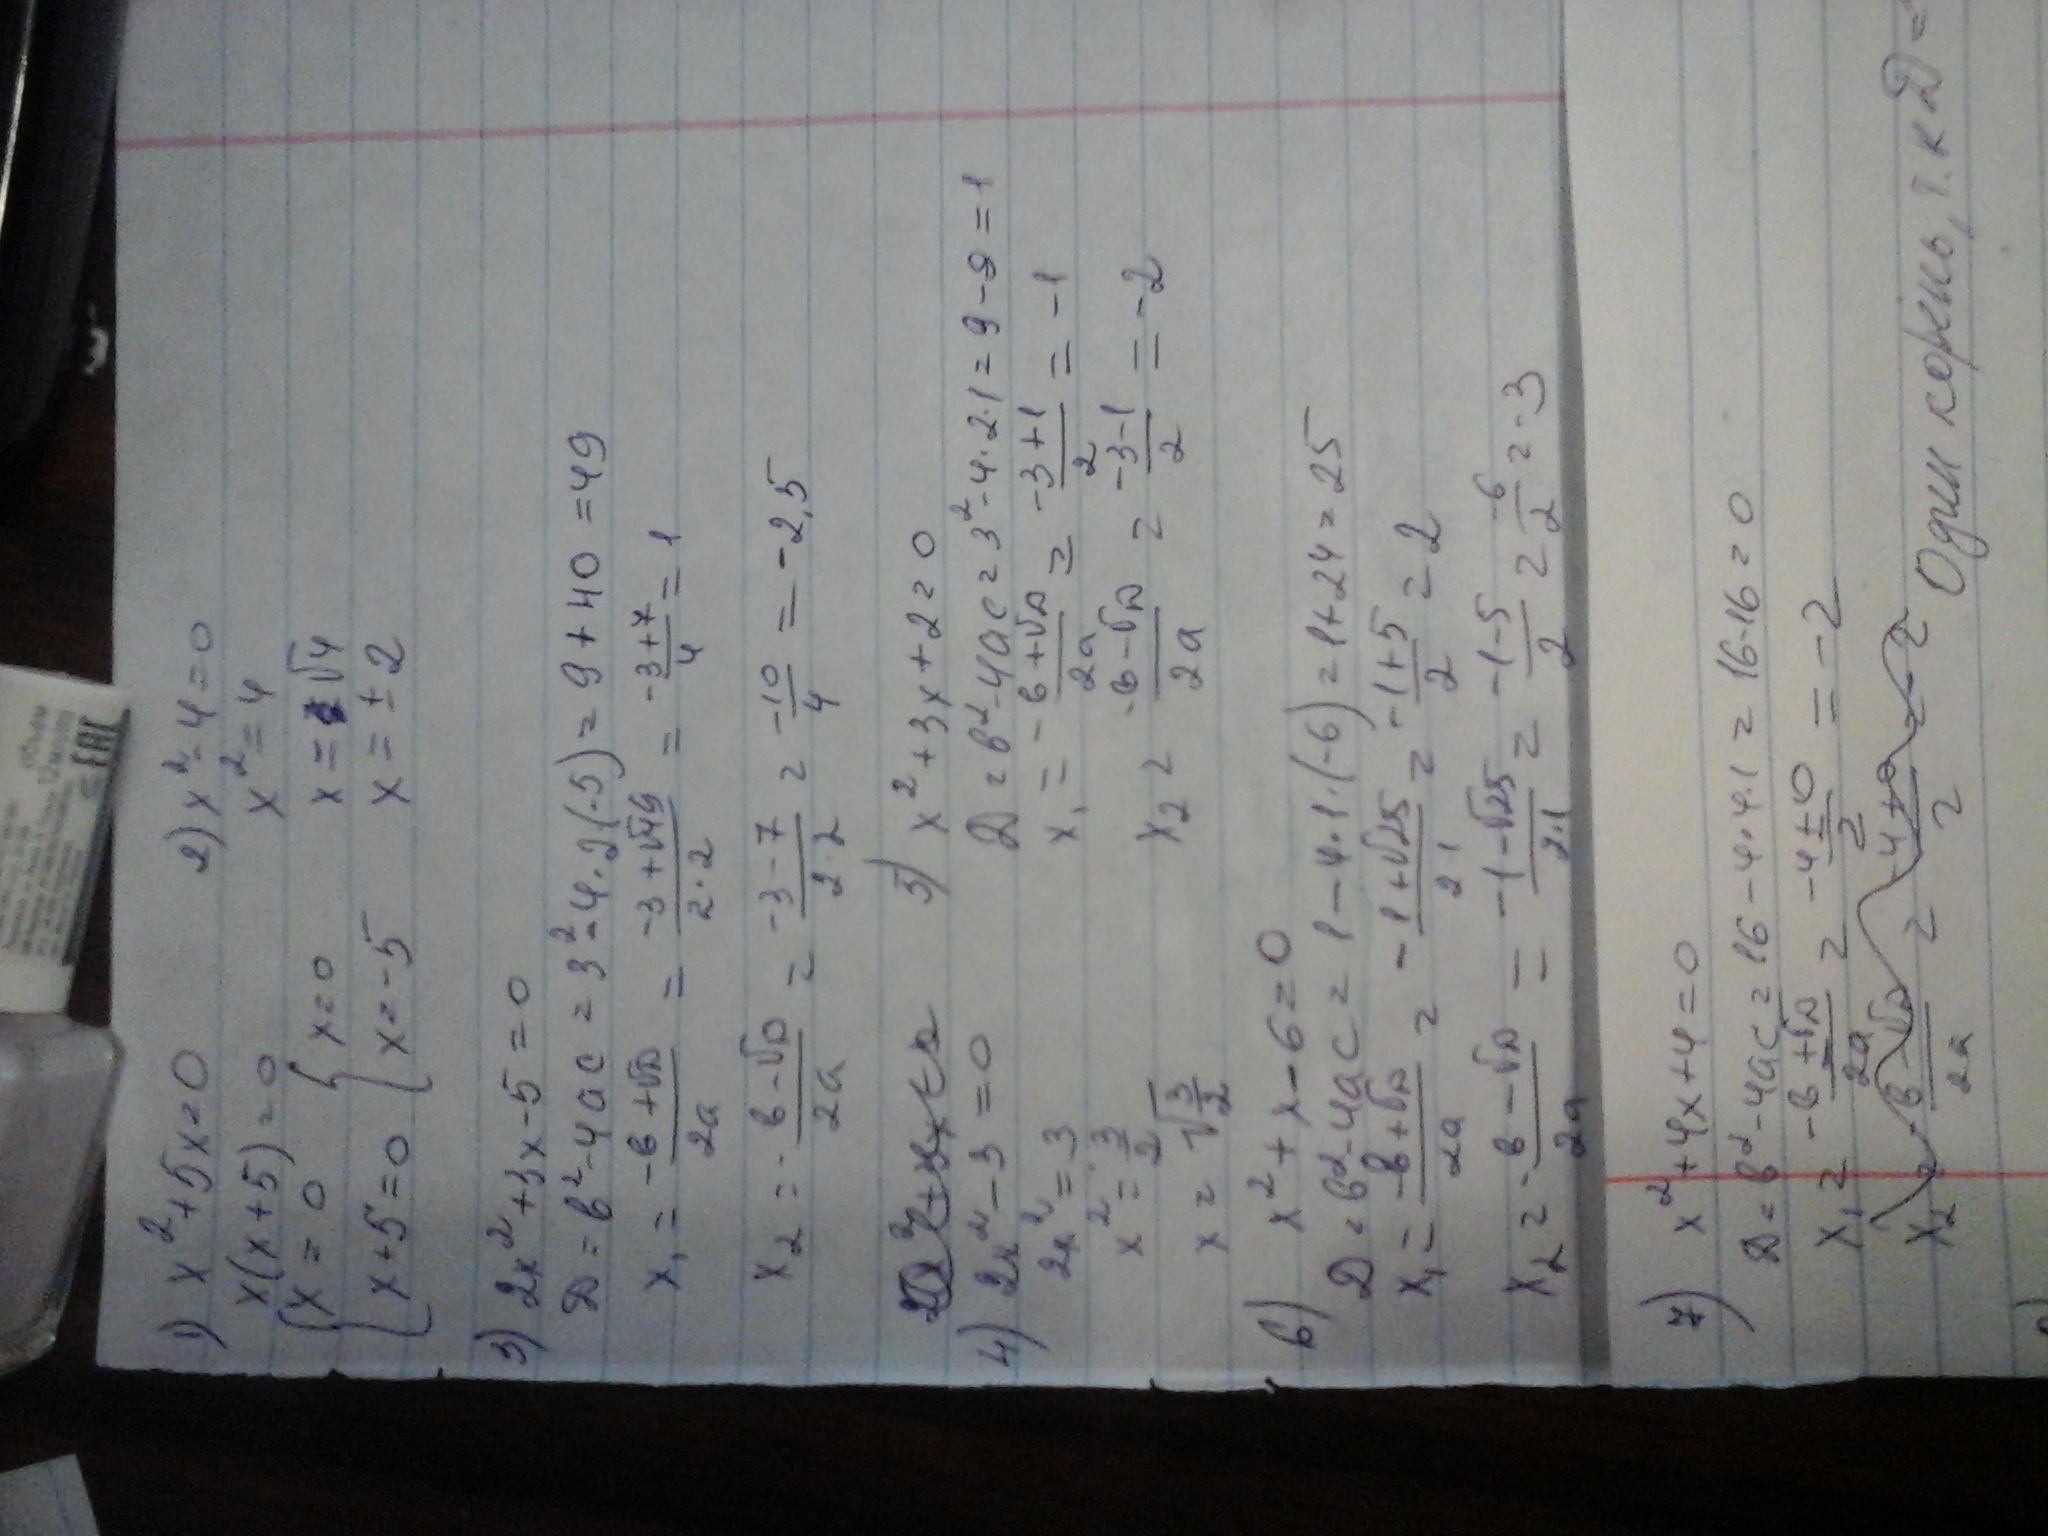 1) x²+5x=0
x(x+5)=0
{x=0 {x=0
{x+5=0 {x=-5
2) x²-4=0
x²=4
x= √4
x=±2
3) 2x²+3x-5=0
D=b²-4ac=3²-4·2(-5)=9+40=49
x₁=(-b+√D)/2a=(-3+√49)/2·2=(-3+7)/4=1
x₂=(-b-√D)/2a=(-3-7)/2·2=-10/4=-2,5
4) 2x²-3=0
2x²=3
x²=3/2
x=√(3/2)
5) x²+3x+2=0
D=b²-4ac=3²-4·2·1=9-8=1
x₁=(-b+√D)/2a=(-3+1)/2=-1
x₂=(-b-√D)/2a=(-3-1)/2=-2
6) x²+x-6=0
D=b²-4ac=1-4·1·(-6)=1+24=25
x₁=(-b+√D)/2a=(-1+√25)/2·1=(-1+5)/2=2
x₂=(-b-√D)/2a=(-1-√25)/2·1=(-1-5)/2=-6/2=-3
7) x²+4x+4=0
D=b²-4ac=16-4·4·1=16-16=0
x₁=(-b±√D)/2a=(-4±0)/2=-2
Один корень, т.к D=
ЕАС